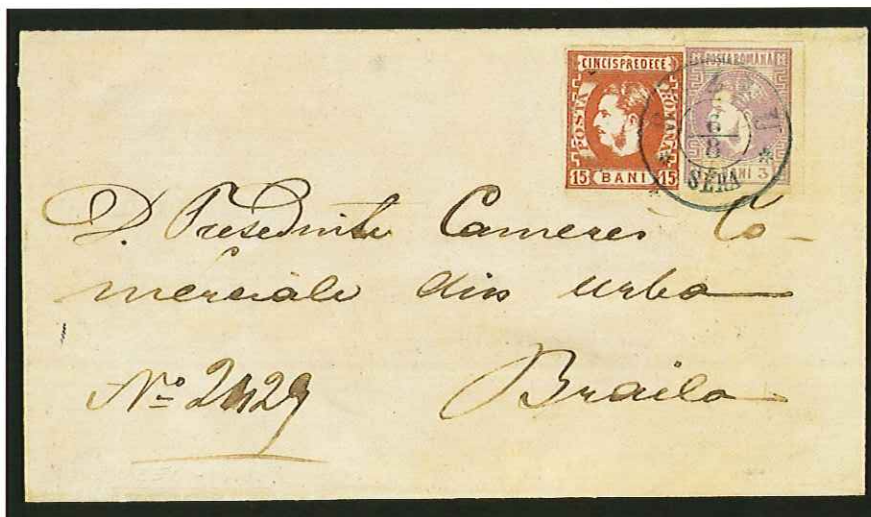 CINCISPREDECE
POSTA ROMANA
15 BANI 15
POSTA ROMANA
BANI 3
6
8
SÉRA
D. Presedinte Camerei Co-
merciale din urba
No 2429
Braila